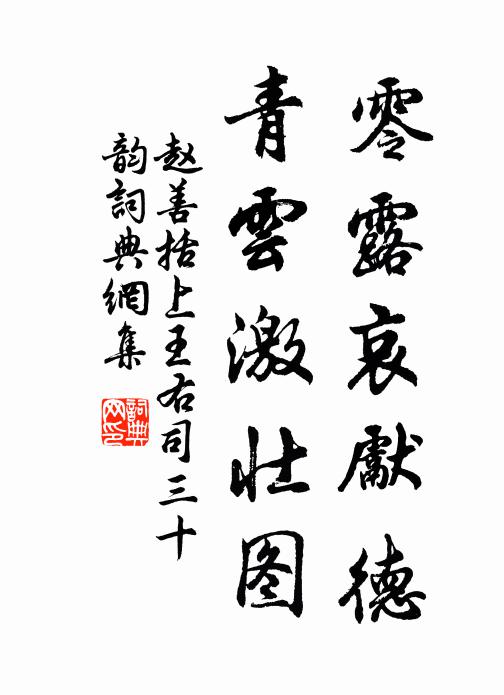 零露哀獻德
青雲激壯图
赵善括上王右司三十
韵詞典網集
詞典网印